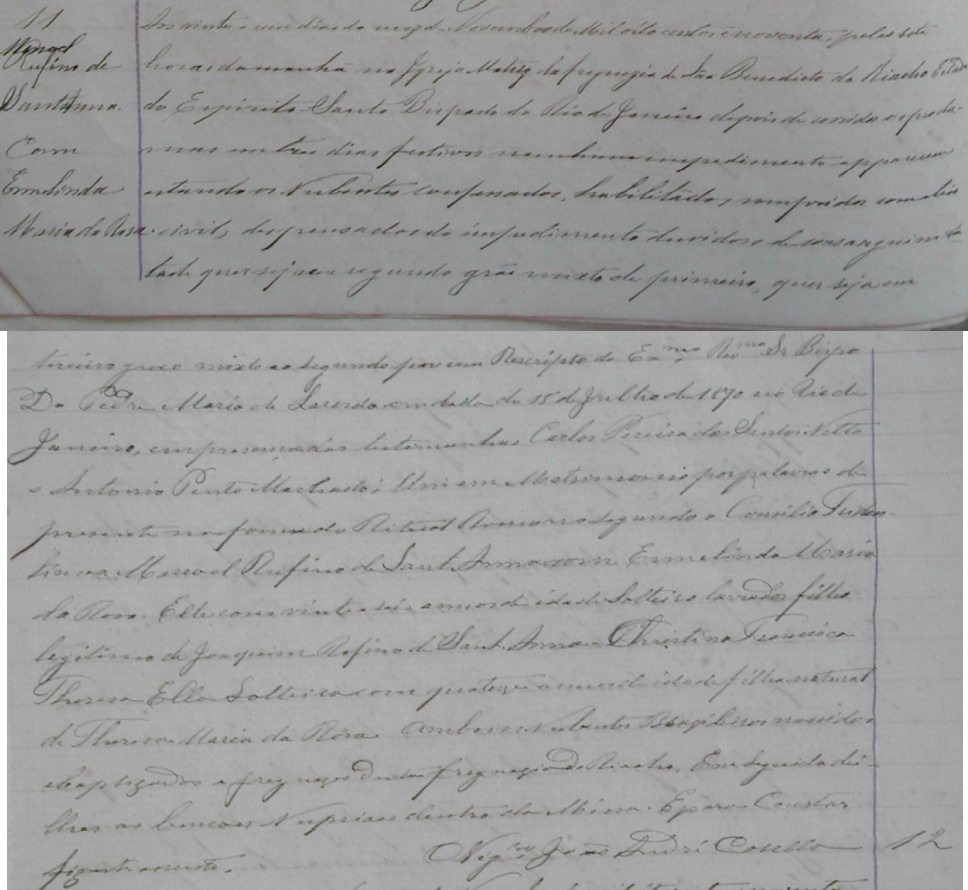 11
Manoel
Rufino de
Sant'Anna
Com
Ermelinda
Maria da Rosa
Aos vinte e um dias do mez de Novembro de Mil oito centos e noventa, pelas sete
horas da manhã na Igreja Matriz da freguezia de São Benedicto do Riacho Estado
do Espirito Santo Bispado do Rio de Janeiro depois de corridos os procla-
mas em tres dias festivos nenhum impedimento appareceu
estando os Nubentes confessados, habilitados, cumpridos com a lei
civil, dispensados do impedimento duvidoso de consanguini-
dade quer seja em segundo gráo mixto de primeiro, quer seja em
terceiro grao mixto ao segundo por um Rescripto do Exmo Revmo Sr Bispo
D. Pedro Maria de Lacerda em data de 15 de Julho de 1890 no Rio de
Janeiro, em presença das testemunhas Carlos Pereira dos Santos Netto
e Antonio Pinto Machado; Uni em Matrimonio por palavras de
presente na forma do Ritual Romano segundo o Concilio Triden-
tino a Manoel Rufino de Sant'Anna com Ermelinda Maria
da Rosa. Elle com vinte e seis annos de idade Solteiro lavrador filho
legitimo de Joaquim Rufino de Sant'Anna e Christina Francisca
Thereza Ella Solteira com quatorze annos de idade filha natural
de Thereza Maria da Rosa ambos os Nubentes Brazileiros nascidos
e baptizados e freguezes desta freguezia do Riacho. Em seguida dei-
lhes as bençoes Nupciaes dentro da Missa. E para Constar
fiz este assento.
Vigro João André Casella
12